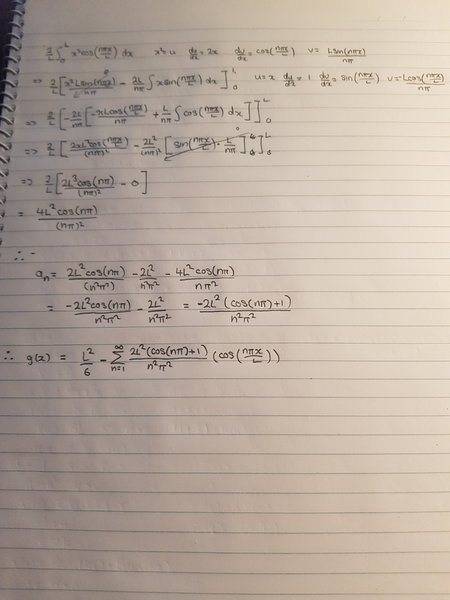 2/L ∫₀ᴸ x²cos(nπx/L) dx   x² = u   du/dx = 2x   dv/dx = cos(nπx/L)   v = Lsin(nπx/L)/nπ
⇒ 2/L [x²Lsin(nπx/L)/nπ - 2L/nπ ∫ xsin(nπx/L) dx]₀ᴸ   u = x   du/dx = 1   dv/dx = sin(nπx/L)   v = -Lcos(nπx/L)/nπ
⇒ 2/L [-2L/nπ [-xLcos(nπx/L)/nπ + L/nπ ∫ cos(nπx/L) dx]]₀ᴸ
⇒ 2/L [2xL²cos(nπx/L)/(nπ)² - 2L²/(nπ)² [sin(nπx/L) · L/nπ]₀ᴸ]₀ᴸ
⇒ 2/L [2L³cos(nπ)/(nπ)² - 0]
= 4L²cos(nπ)/(nπ)²
∴ -
aₙ = 2L²cos(nπ)/(n²π²) - 2L²/n²π² - 4L²cos(nπ)/nπ²
= -2L²cos(nπ)/n²π² - 2L²/n²π² = -2L²(cos(nπ)+1)/n²π²
∴ g(x) = L²/6 - ∑ₙ₌₁^∞ 2L²(cos(nπ)+1)/n²π² (cos(nπx/L))